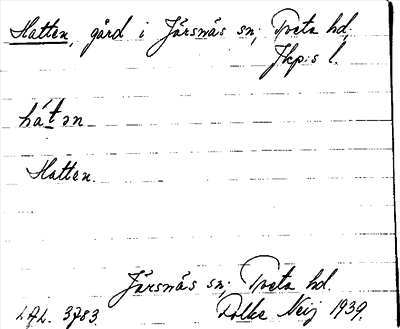 Hatten, gård i Järsnäs sn; Tveta hd.
Jkp:s l.
hát ən
Hatten.
Järsnäs sn; Tveta hd.
Folke Neij 1939.
3783